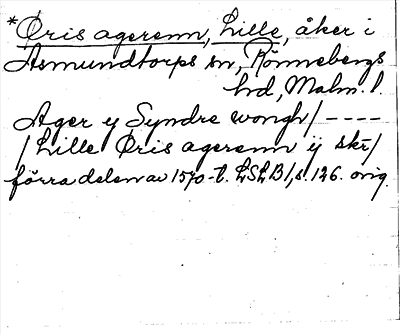 *Öris agerenn, Lille, åker i
Asmundtorps sn, Rönnebergs
hd, Malm. l.
Ager y Syndre wongh/ ----
/Lille Öris agerenn ij skr/
förra delen av 1570-t. LSLB 1, s. 126. orig.